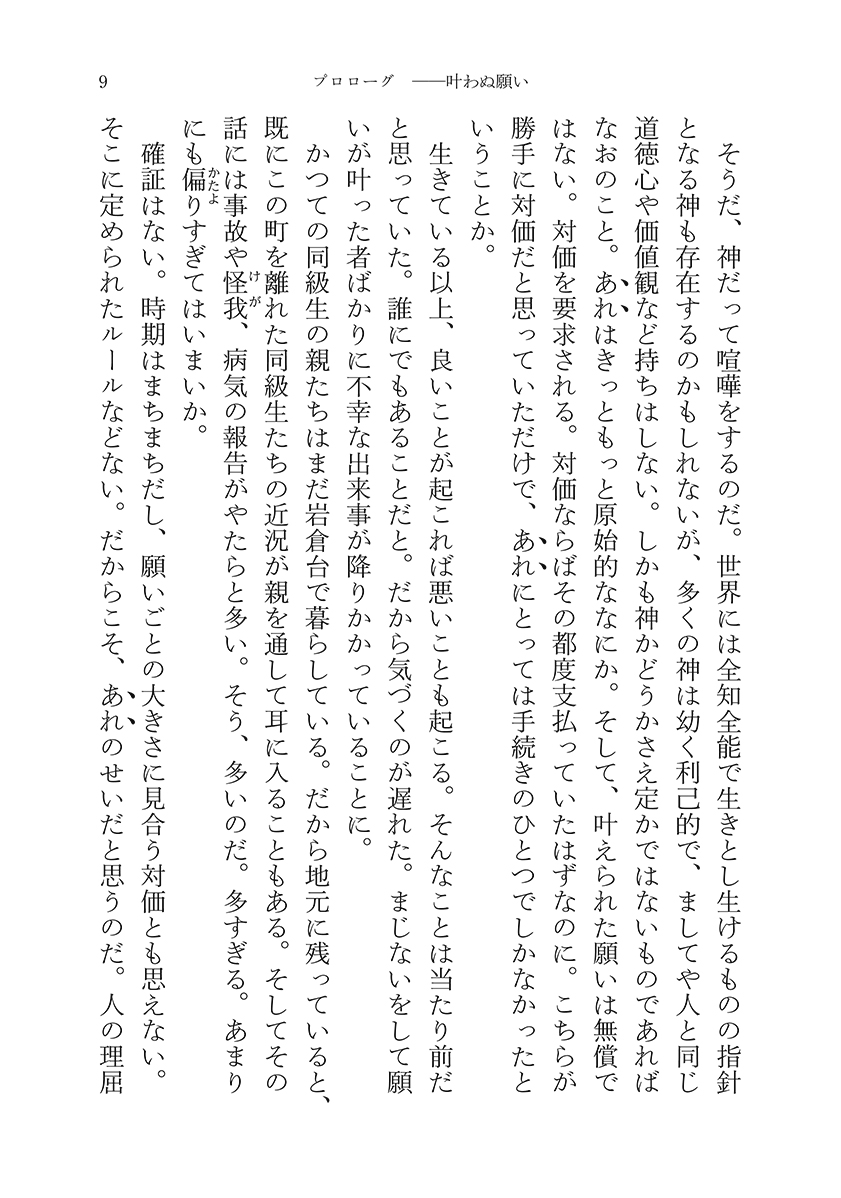 9
プロローグ　――叶わぬ願い
　そうだ、神だって喧嘩をするのだ。世界には全知全能で生きとし生けるものの指針
となる神も存在するのかもしれないが、多くの神は幼く利己的で、ましてや人と同じ
道徳心や価値観など持ちはしない。しかも神かどうかさえ定かではないものであれば
なおのこと。あれはきっともっと原始的ななにか。そして、叶えられた願いは無償で
はない。対価を要求される。対価ならばその都度支払っていたはずなのに。こちらが
勝手に対価だと思っていただけで、あれにとっては手続きのひとつでしかなかったと
いうことか。
　生きている以上、良いことが起これば悪いことも起こる。そんなことは当たり前だ
と思っていた。誰にでもあることだと。だから気づくのが遅れた。まじないをして願
いが叶った者ばかりに不幸な出来事が降りかかっていることに。
　かつての同級生の親たちはまだ岩倉台で暮らしている。だから地元に残っていると、
既にこの町を離れた同級生たちの近況が親を通して耳に入ることもある。そしてその
話には事故や怪我、病気の報告がやたらと多い。そう、多いのだ。多すぎる。あまり
にも偏りすぎてはいまいか。
　確証はない。時期はまちまちだし、願いごとの大きさに見合う対価とも思えない。
そこに定められたルールなどない。だからこそ、あれのせいだと思うのだ。人の理屈